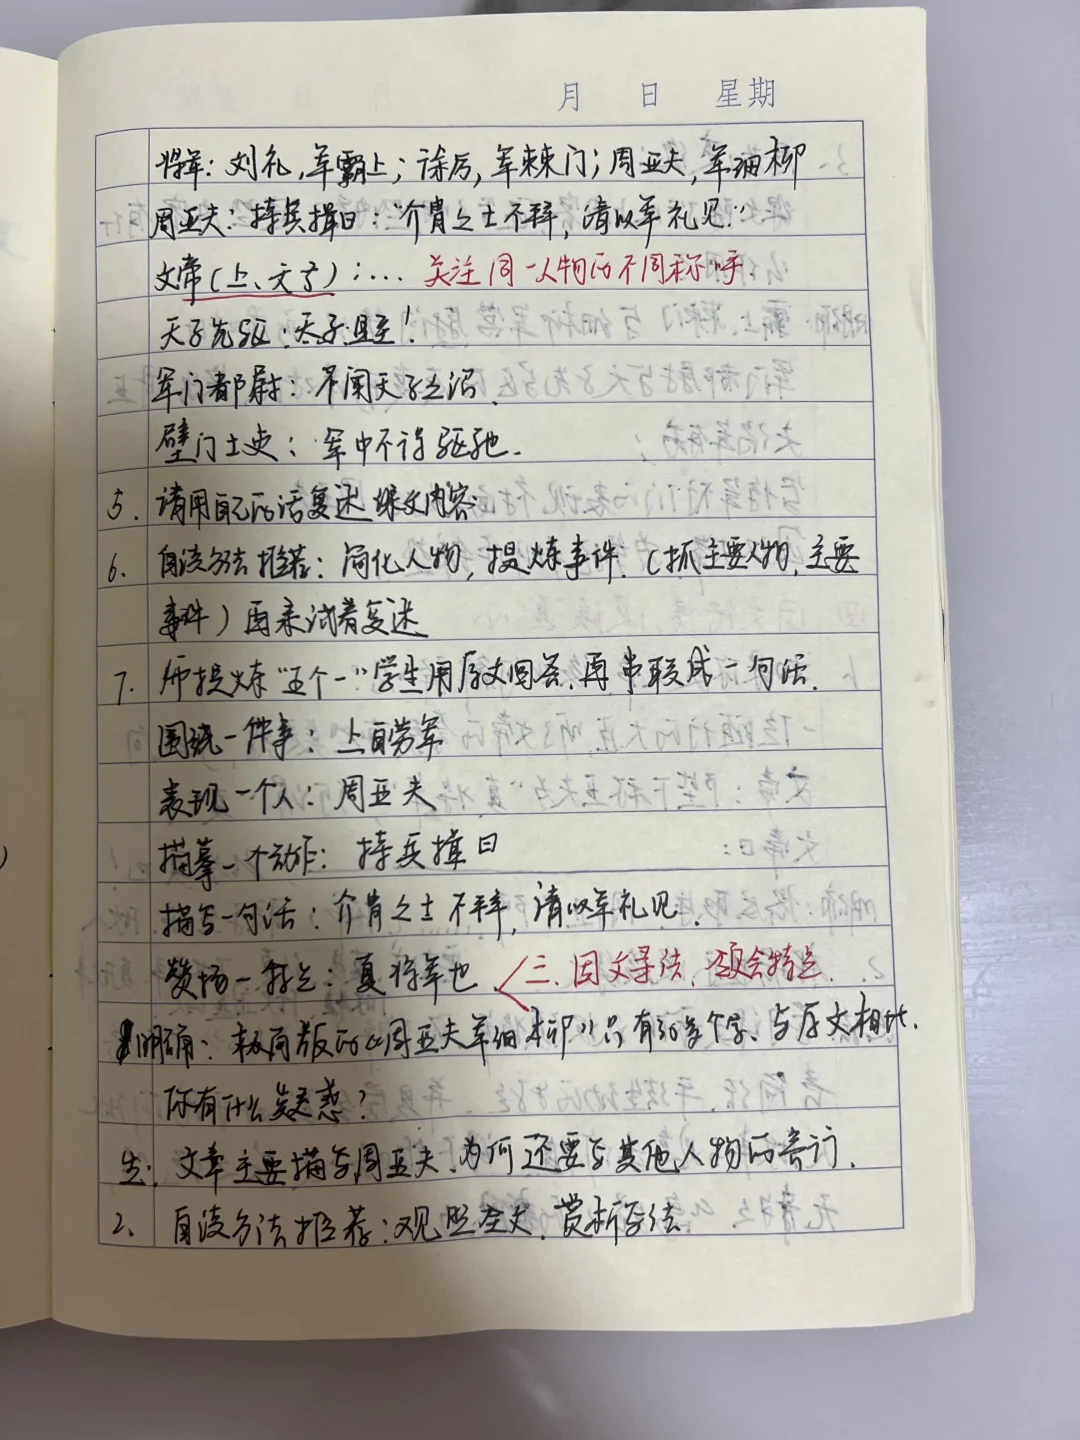 月 日 星期
将军：刘礼，军霸上；徐厉，军棘门；周亚夫，军细柳
周亚夫：持兵揖曰：“介胄之士不拜，请以军礼见.”
文帝（上、天子）：... 关注同一人物的不同称呼.
天子先驱：天子且至！
军门都尉：不闻天子之诏.
壁门士吏：军中不得驱驰.
5. 请用自己的话复述课文内容.
6. 自读方法推荐：简化人物，提炼事件.（抓主要人物，主要
事件）再来试着复述
7. 师提炼“五个一”学生用原文回答，再串联成一句话.
围绕一件事：上自劳军
表现一个人：周亚夫
描摹一个动作：持兵揖曰
描写一句话：介胄之士不拜，请以军礼见.
赞扬一特点：真将军也. 三、因文寻法，领会特点
明确：板局版的《周亚夫军细柳》只有40多个字、与原文相比.
你有什么疑惑？
生：文章主要描写周亚夫，为何还要写其他人物的言行.
2. 自读方法推荐：观照全文，赏析写法